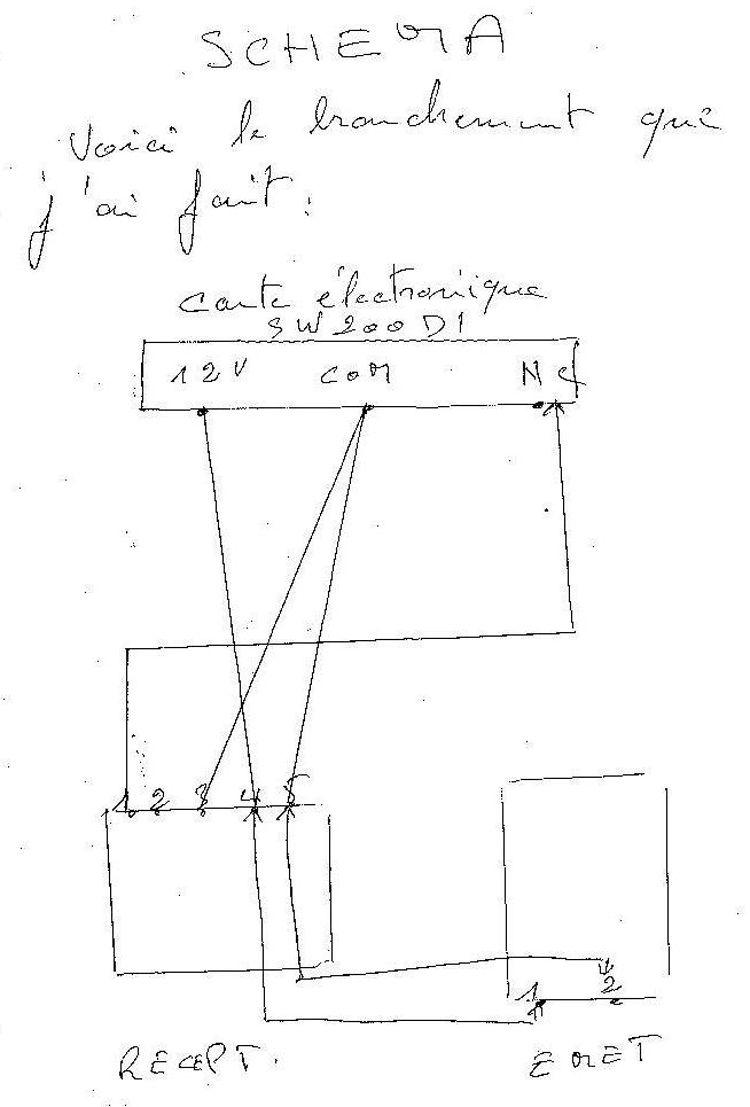 SCHEMA
Voici le branchement que
j'ai fait :
carte électronique
SW200D1
12V COM NC
1 2 3 4 5
1 2
RECEPT. EMET